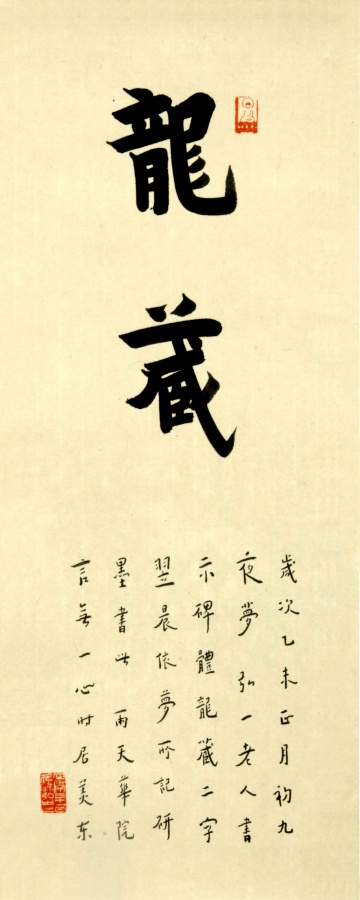 龍藏
歲次乙未正月初九
夜夢弘一老人書
示碑體龍藏二字
翌晨依夢所記研
墨書此 雨天華院
言無一心時居美东